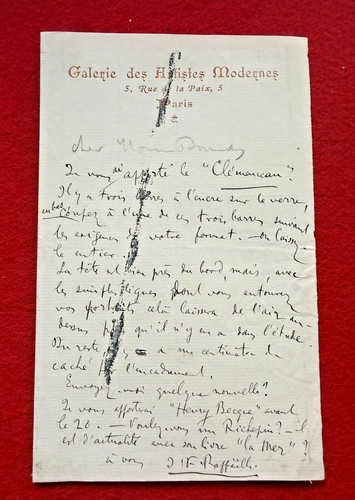 Galerie des Artistes Modernes
5, Rue de la Paix, 5
Paris
cher Mon
Je vous ai apporté le "Clémenceau".
Il y a trois barres à l'encre sur le verre,
en bas, coupez à l'une de ces trois barres suivant
les exigences de votre format. — ou laissez
le entier.
La tête est bien près du bord, mais, avec
les simples lignes dont vous entourez
vos portraits cela laissera de l'air au-
dessus plus qu'il n'y en a dans l'étude.
Du reste, il y a un centimètre de
caché par l'encadrement.
Envoyez-moi quelque nouvelle?
Je vous apporterai "Henry Becque" avant
le 20. — Voulez-vous un Richepin? — il
est d'actualité avec son livre "la Mer"?
à vous J F Raffaëlli.